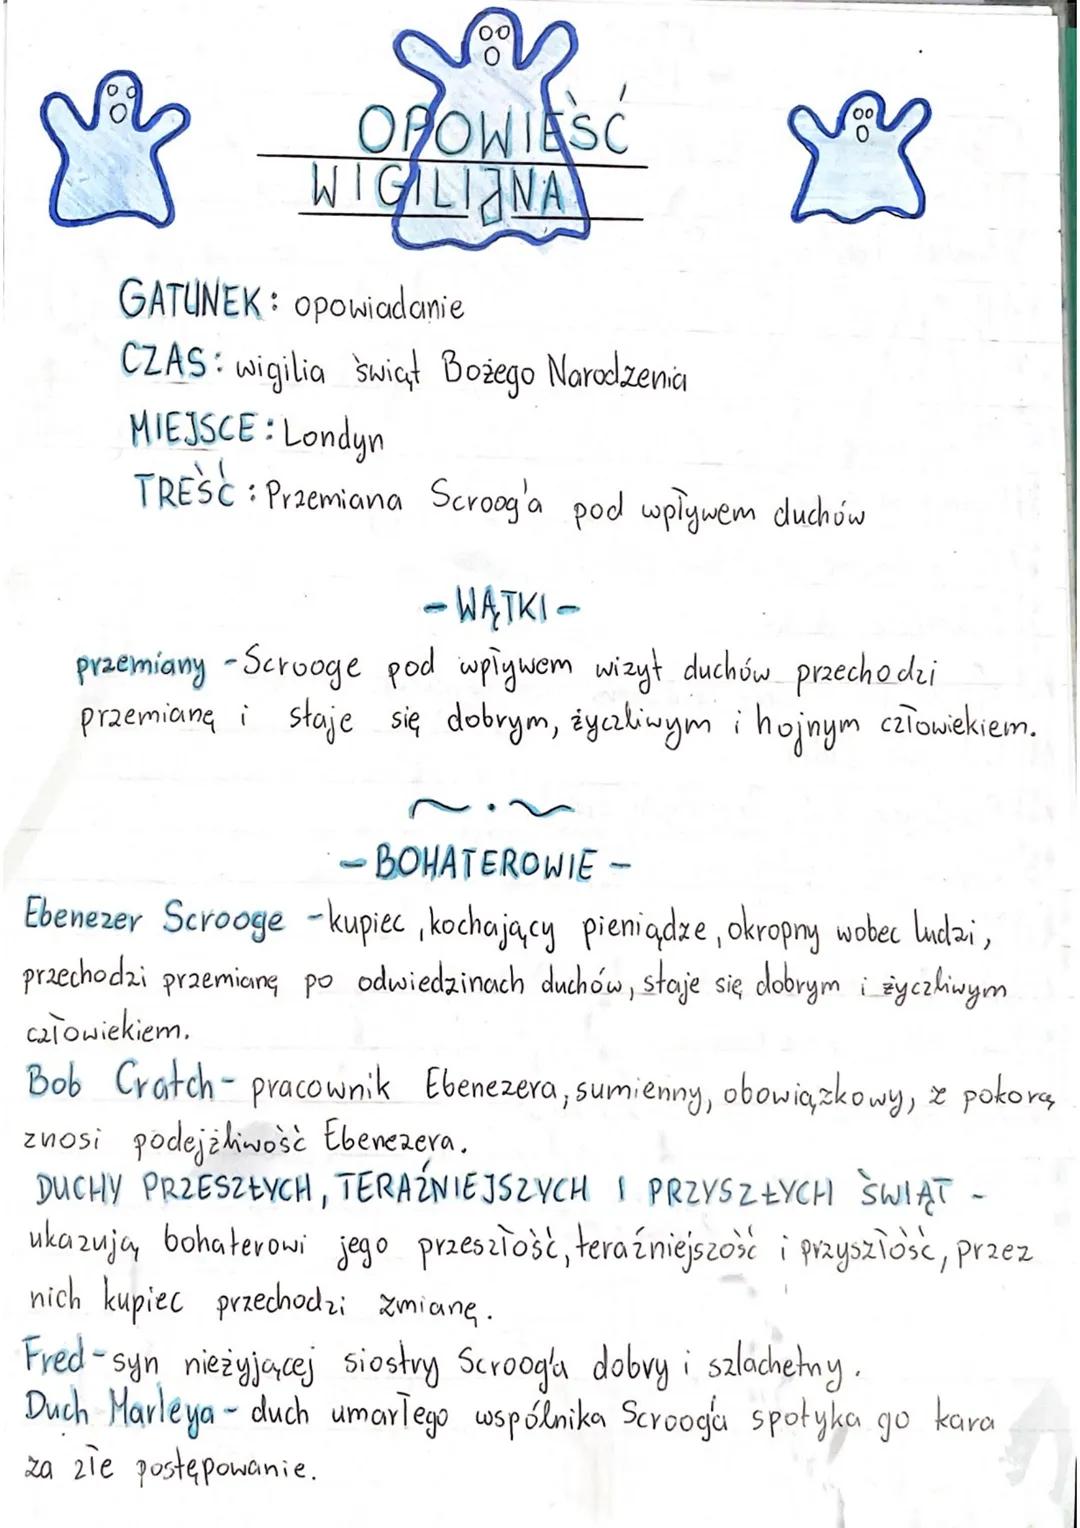 OPOWIEŚĆ
WIGILIJNA
GATUNEK: opowiadanie
CZAS: wigilia świąt Bożego Narodzenia
MIEJSCE: Londyn
TREŚĆ: Przemiana Scroog'a pod wpływem duchów
- WĄTKI -
przemiany - Scrooge pod wpływem wizyt duchów przechodzi
przemianę i staje się dobrym, życzliwym i hojnym człowiekiem.
- BOHATEROWIE -
Ebenezer Scrooge - kupiec, kochający pieniądze, okropny wobec ludzi,
przechodzi przemianę po odwiedzinach duchów, staje się dobrym i życzliwym
człowiekiem.
Bob Cratch - pracownik Ebenezera, sumienny, obowiązkowy, z pokorą
znosi podejżliwość Ebenezera.
DUCHY PRZESZŁYCH, TERAŹNIEJSZYCH I PRZYSZŁYCH ŚWIĄT -
ukazują bohaterowi jego przeszłość, teraźniejszość i przyszłość, przez
nich kupiec przechodzi zmianę.
Fred - syn nieżyjącej siostry Scroog'a dobry i szlachetny.
Duch Marleya - duch umarłego wspólnika Scroog'a spotyka go kara
za złe postępowanie.